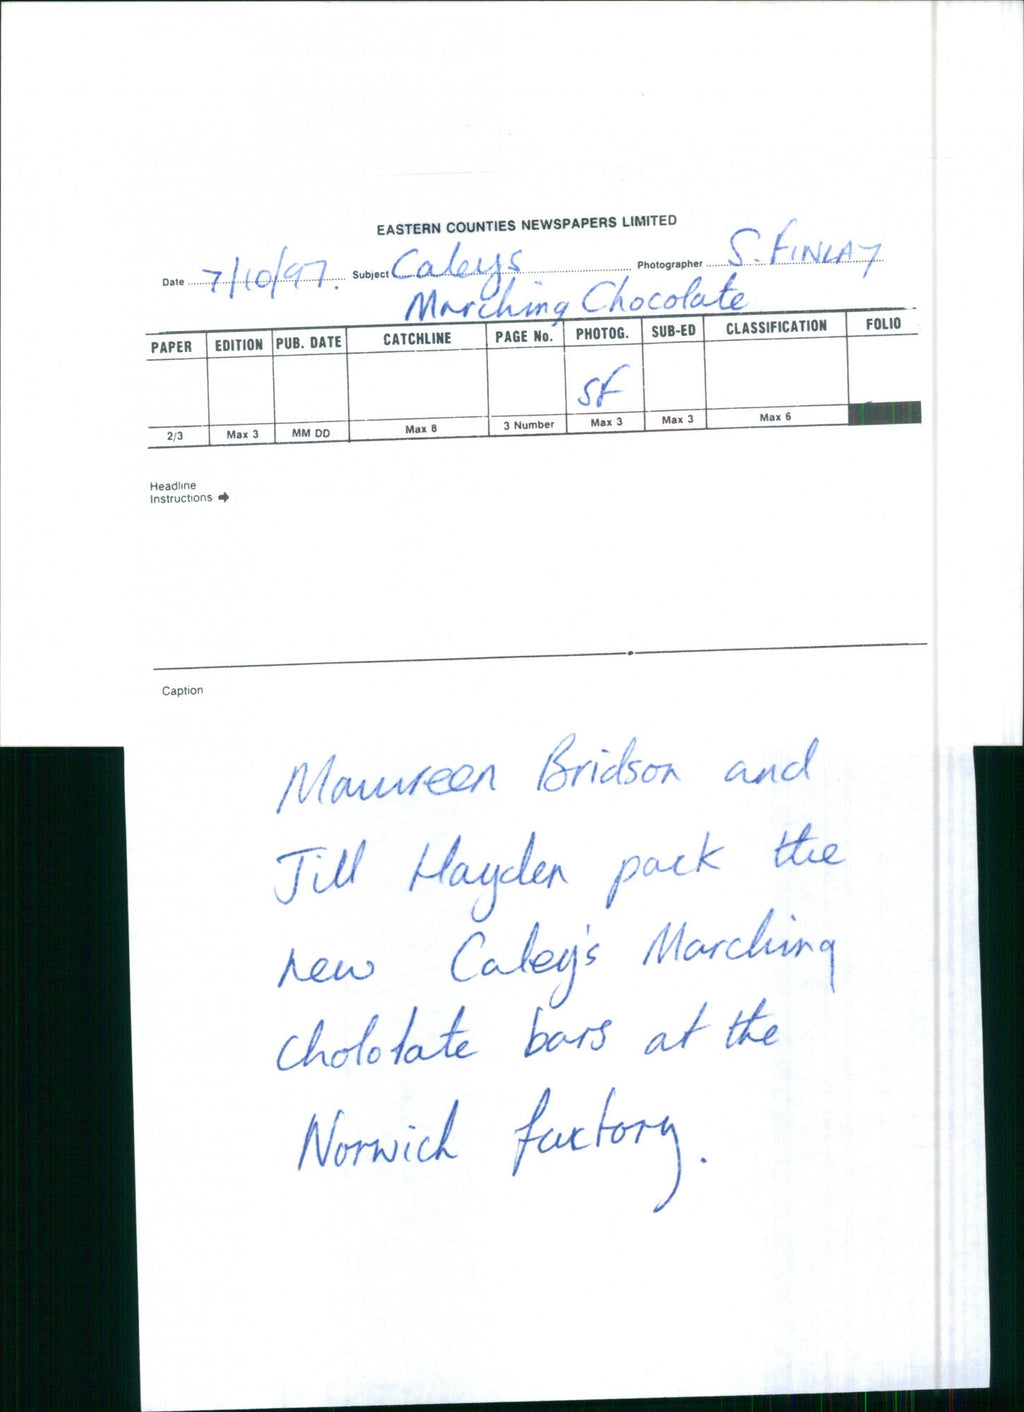 EASTERN COUNTIES NEWSPAPERS LIMITED
Date 7/10/97. Subject Caleys Photographer S. FINLAY
Marching Chocolate
PAPER EDITION PUB. DATE CATCHLINE PAGE No. PHOTOG. SUB-ED CLASSIFICATION FOLIO
SF
2/3 Max 3 MM DD Max 8 3 Number Max 3 Max 3 Max 6
Headline
Instructions →
Caption
Maureen Bridson and
Jill Hayden pack the
new Caley's Marching
chololate bars at the
Norwich factory.